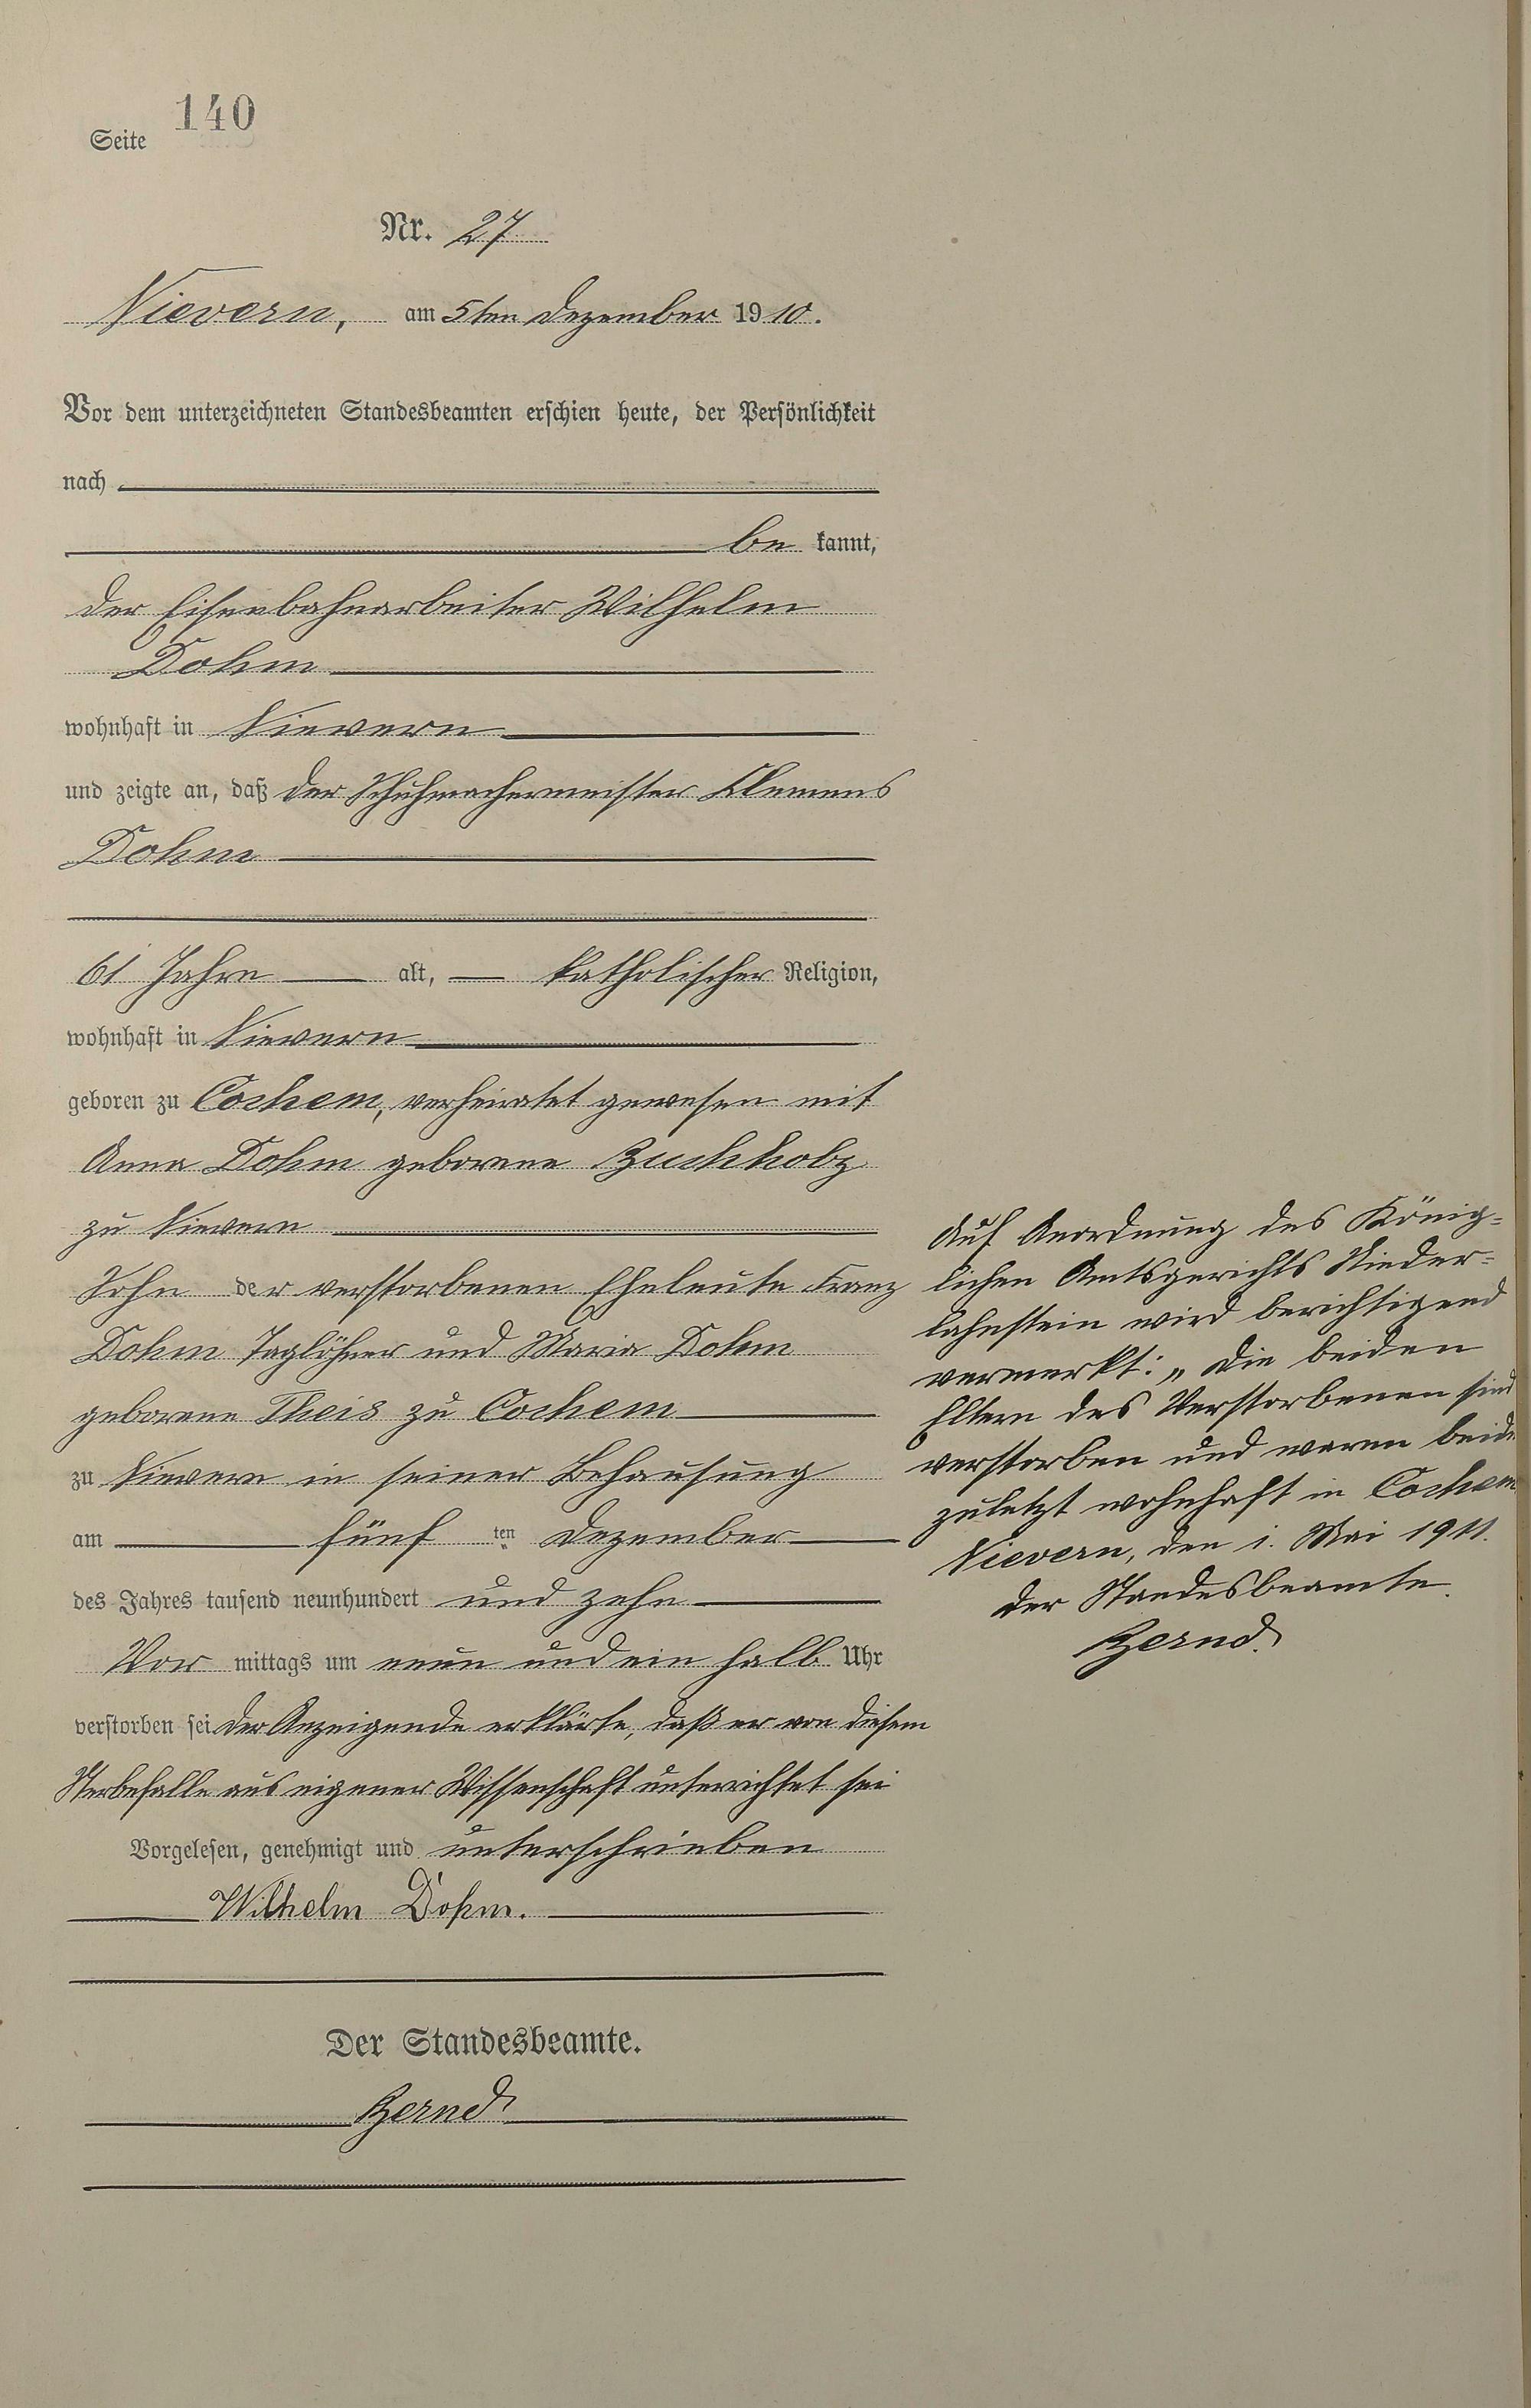 Seite 140
Nr. 27
Nievern, am 5ten Dezember 1910.
Vor dem unterzeichneten Standesbeamten erschien heute, der Persönlichkeit
nach
be kannt,
der Eisenbahnarbeiter Wilhelm
Dohm
wohnhaft in Nievern
und zeigte an, daß der Schuhmachermeister Klemens
Dohm
61 Jahre alt, katholischer Religion,
wohnhaft in Nievern
geboren zu Cochem, verheiratet gewesen mit
Anna Dohm geborene Buchholz
zu Nievern
Sohn der verstorbenen Eheleute Franz
Dohm Taglöhner und Maria Dohm
geborene Theis zu Cochem
zu Nievern in seiner Behausung
am fünf ten Dezember
des Jahres tausend neunhundert und zehn
Vor mittags um neun und ein halb Uhr
verstorben sei der Anzeigende erklärte, daß er von diesem
Sterbefalle aus eigener Wissenschaft unterrichtet sei
Vorgelesen, genehmigt und unterschrieben
Wilhelm Dohm.
Der Standesbeamte.
Bernd
Auf Anordnung des König=
lichen Amtsgerichts Nieder=
lahnstein wird berichtigend
vermerkt: „ Die beiden
Eltern des Verstorbenen sind
verstorben und waren beide
zuletzt wohnhaft in Cochem
Nievern, den 1. Mai 1911.
Der Standesbeamte.
Bernd.